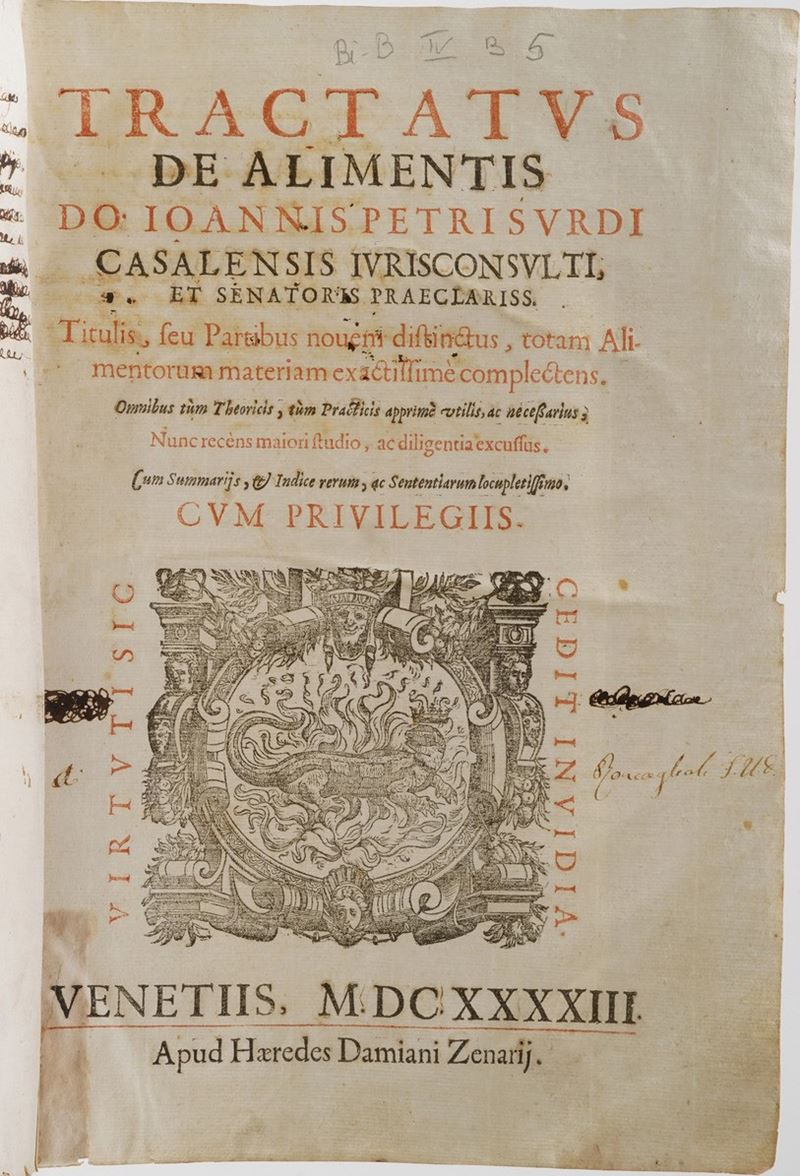 Bi-B IV B 5
TRACTATVS
DE ALIMENTIS
DO· IOANNIS PETRI SVRDI
CASALENSIS IVRISCONSVLTI,
ET SENATORIS PRAECLARISS.
Titulis, seu Partibus nouem distinctus, totam Ali-
mentorum materiam exactissimè complectens.
Omnibus tùm Theoricis, tùm Practicis apprimè vtilis, ac necessarius;
Nunc recèns maiori studio, ac diligentia excussus.
Cum Summarijs, & Indice rerum, ac Sententiarum locupletissimo.
CVM PRIVILEGIIS.
VIRTVTI SIC
CEDIT INVIDIA.
VENETIIS, M.DC.XXXXIII.
Apud Hæredes Damiani Zenarij.